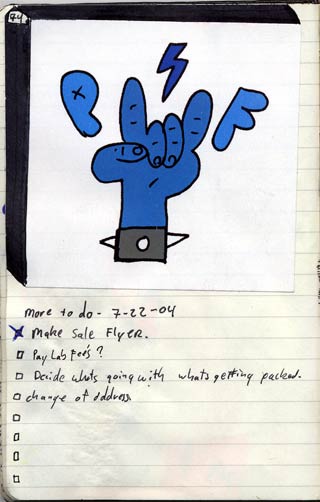 44
P F
more to do- 7-22-04
Make Sale Flyer.
Pay Lab Fees?
Decide whats going with whats getting packed.
change of address